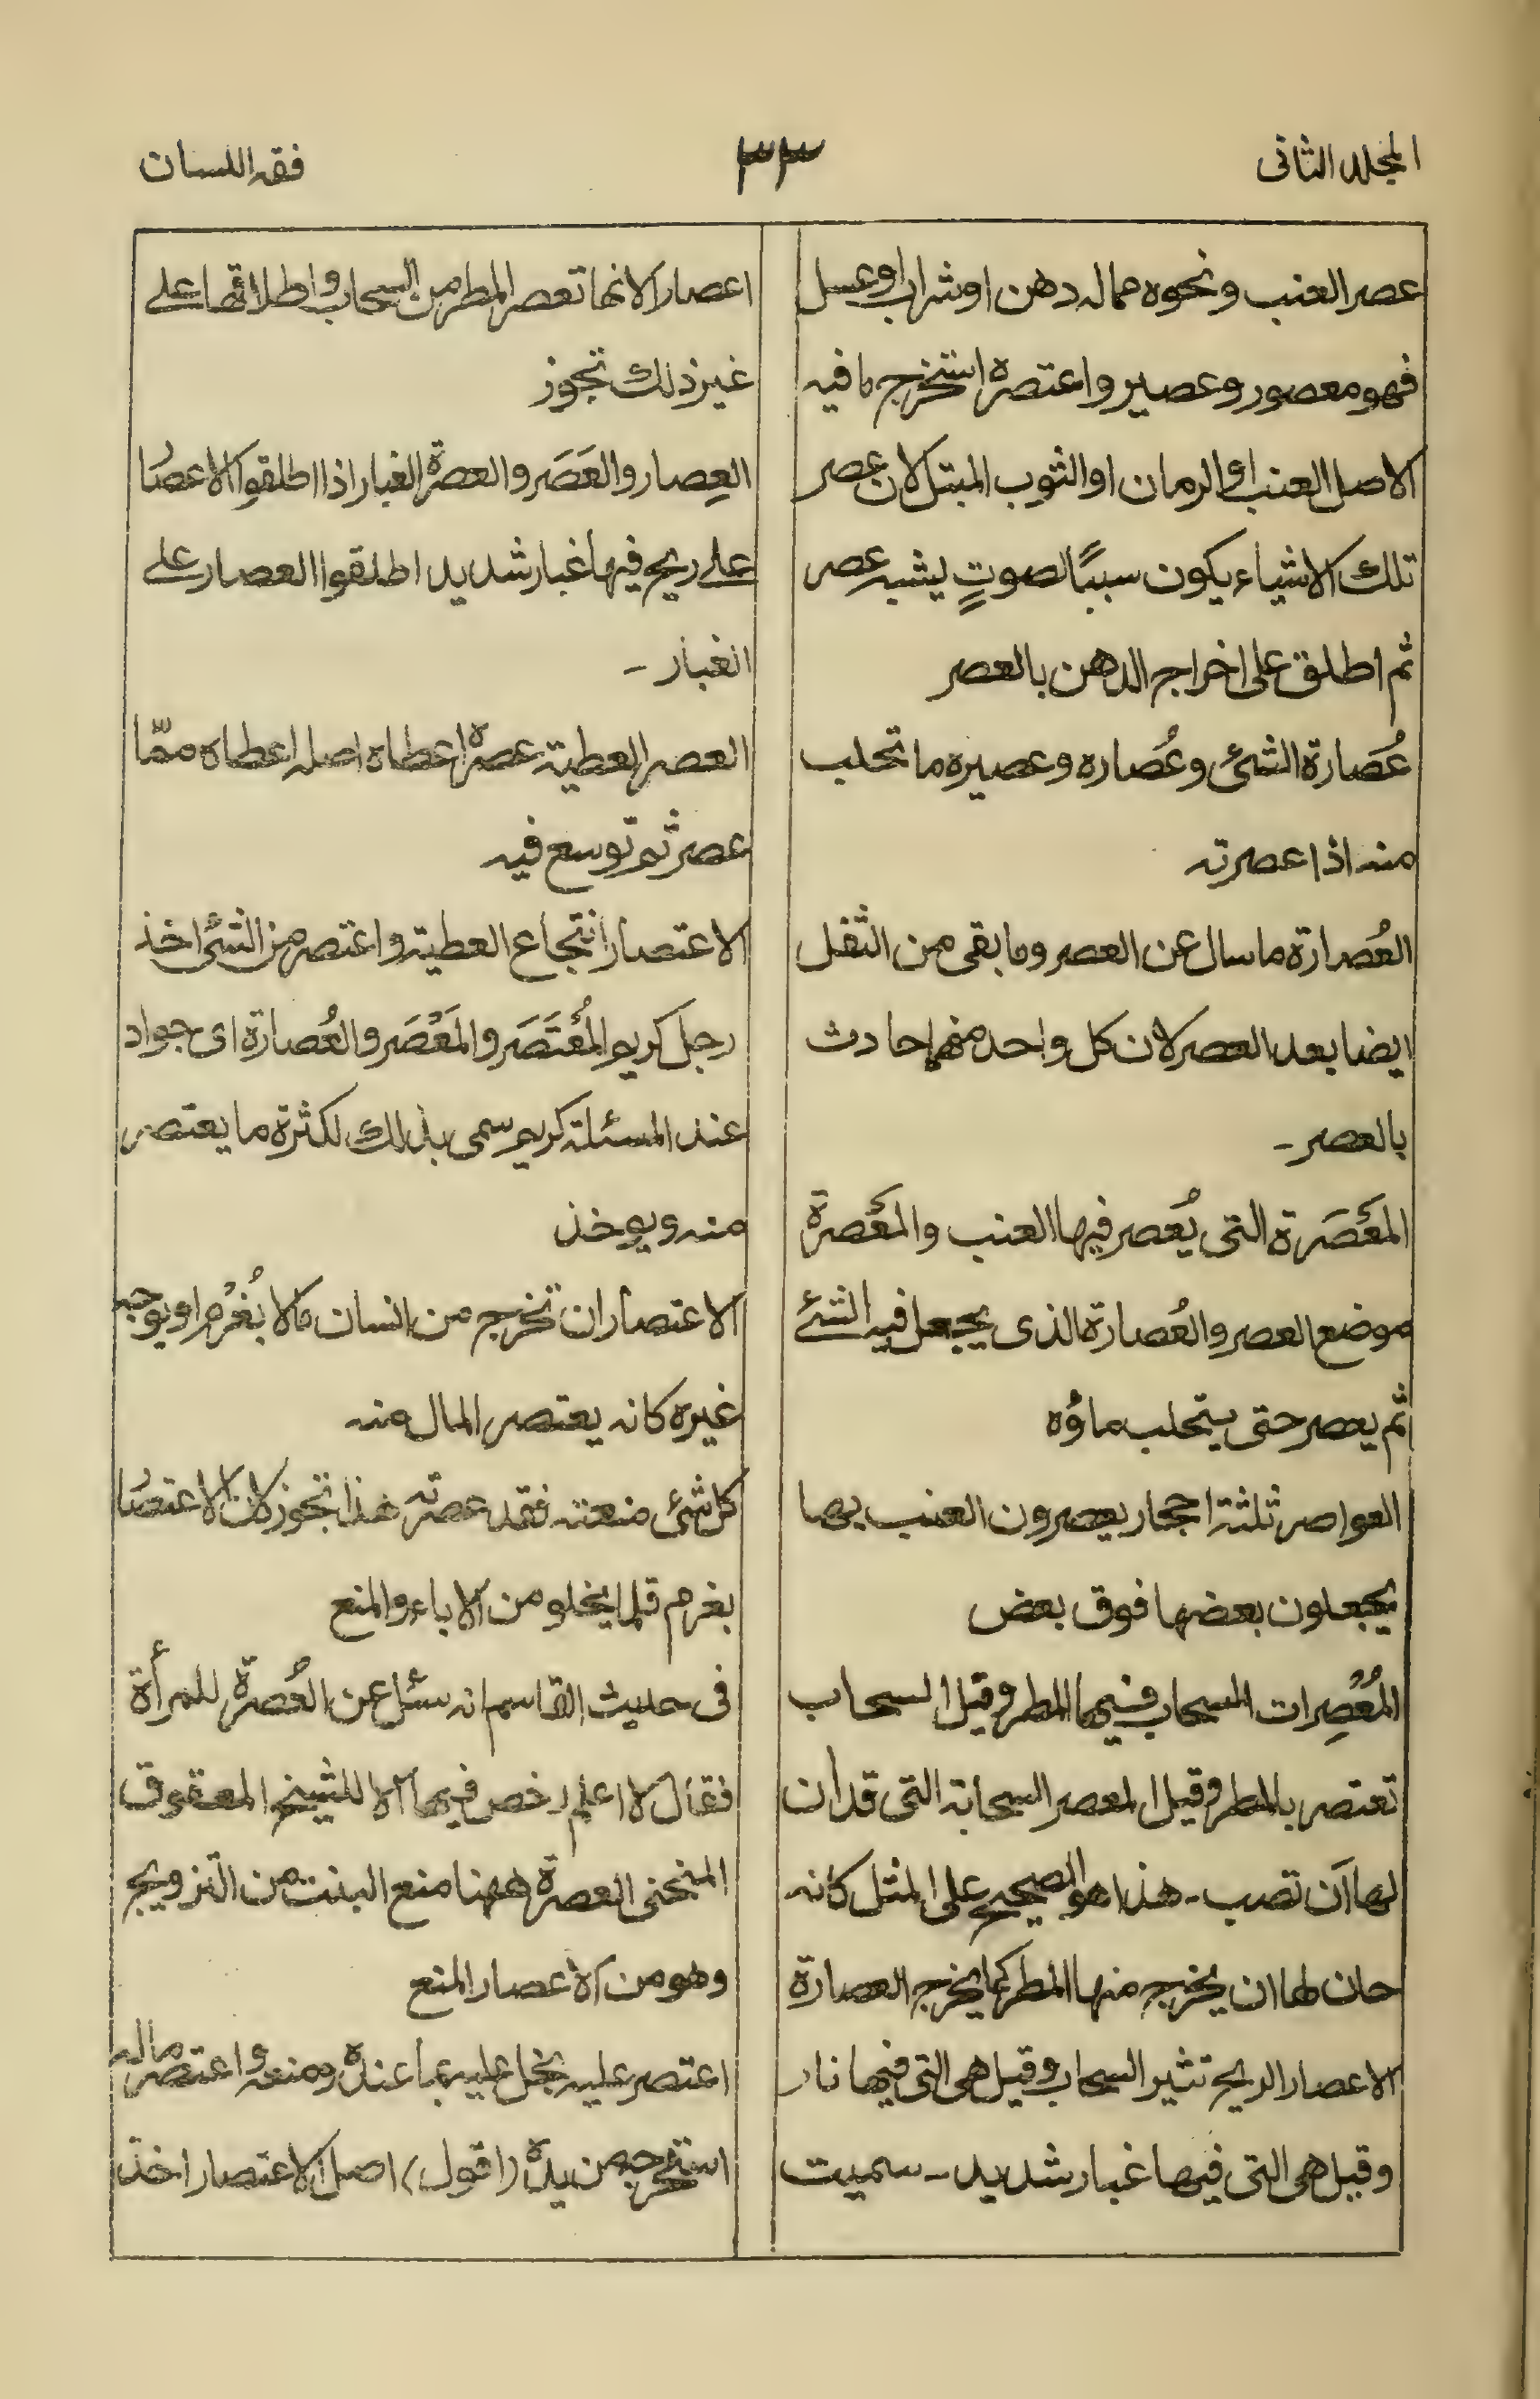 المجلد الثانى
٣٣
فقه اللسان
عصر العنب ونحوه مماله دهن او شراب او عسل
فهو معصور وعصير واعتصره استخرج مافيه
الاصل العنب او الرمان او الثوب المبتل لان عصر
تلك الاشياء يكون سببًا لصوتٍ يشبه عصر
ثم اطلق على اخراج الدهن بالعصر
عُصَارة الشئ وعُصاره وعصيره ما تحلب
منه اذا عصرته
العُصارة ماسال عن العصر ومابقى من الثفل
ايضا بعد العصر لان كل واحد منهما حادث
بالعصر -
المَعْصَرَة التى يُعصر فيها العنب والمَعْصرة
موضع العصر والعُصارة الذى يجعل فيه الشئ
ثم يعصر حتى يتحلب ماؤه
العواصر ثلثة احجار يعصرون العنب بها
يجعلون بعضها فوق بعض
المُعْصِرات السحاب فيها المطر وقيل السحاب
تعتصر بالمطر وقيل المعصر السحابة التى قد ان
لها آن تصب - هذا هو الصحيح على المثل كانه
حان لها ان يخرج منها المطر كما يخرج العصارة
الاعصار الريح تثير السحاب وقيل هى التى فيها نار
وقيل هى التى فيها غبار شديد - سميت
اعصارا لانها تعصر المطر من السحاب واطلاقها على
غير ذلك تجوز
العِصار والعَصَر والعصرة الغبار اذا اطلقوا الاعصا
على ريح فيها غبار شديد اطلقوا العصار على
الغبار -
العصر العطية عصره اعطاه اصله اعطاه ممّا
عصر ثم توسع فيه
الاعتصار انتجاع العطية واعتصر من الشئ اخذ
رجل كريم المُعْتَصَر والمَعْصَر والعُصارة اى جواد
عند المسئلة كريم سمى بذلك لكثرة ما يعتصر
منه ويوخذ
الاعتصار ان تخرج من انسان مالا بُغْرُم او بوجه
غيره كانه يعتصر المال منه
كل شئ منعته فقد عصرته هذا تجوز لان الاعتصا
بغرم قلما يخلو من الاباء والمنع
فى حديث القاسم انه سئل عن العُصرة للمرأة
فقال لا اعلم رخص فيها الا للشيخ المعقوق
المنحنى العصرة ههنا منع البنت من التزويج
وهو من الاعصار المنع
اعتصر عليه بخل عليه بما عنده ومنعه واعتصر ماله
استخرجه من يده (اقول) اصل الاعتصار اخذ